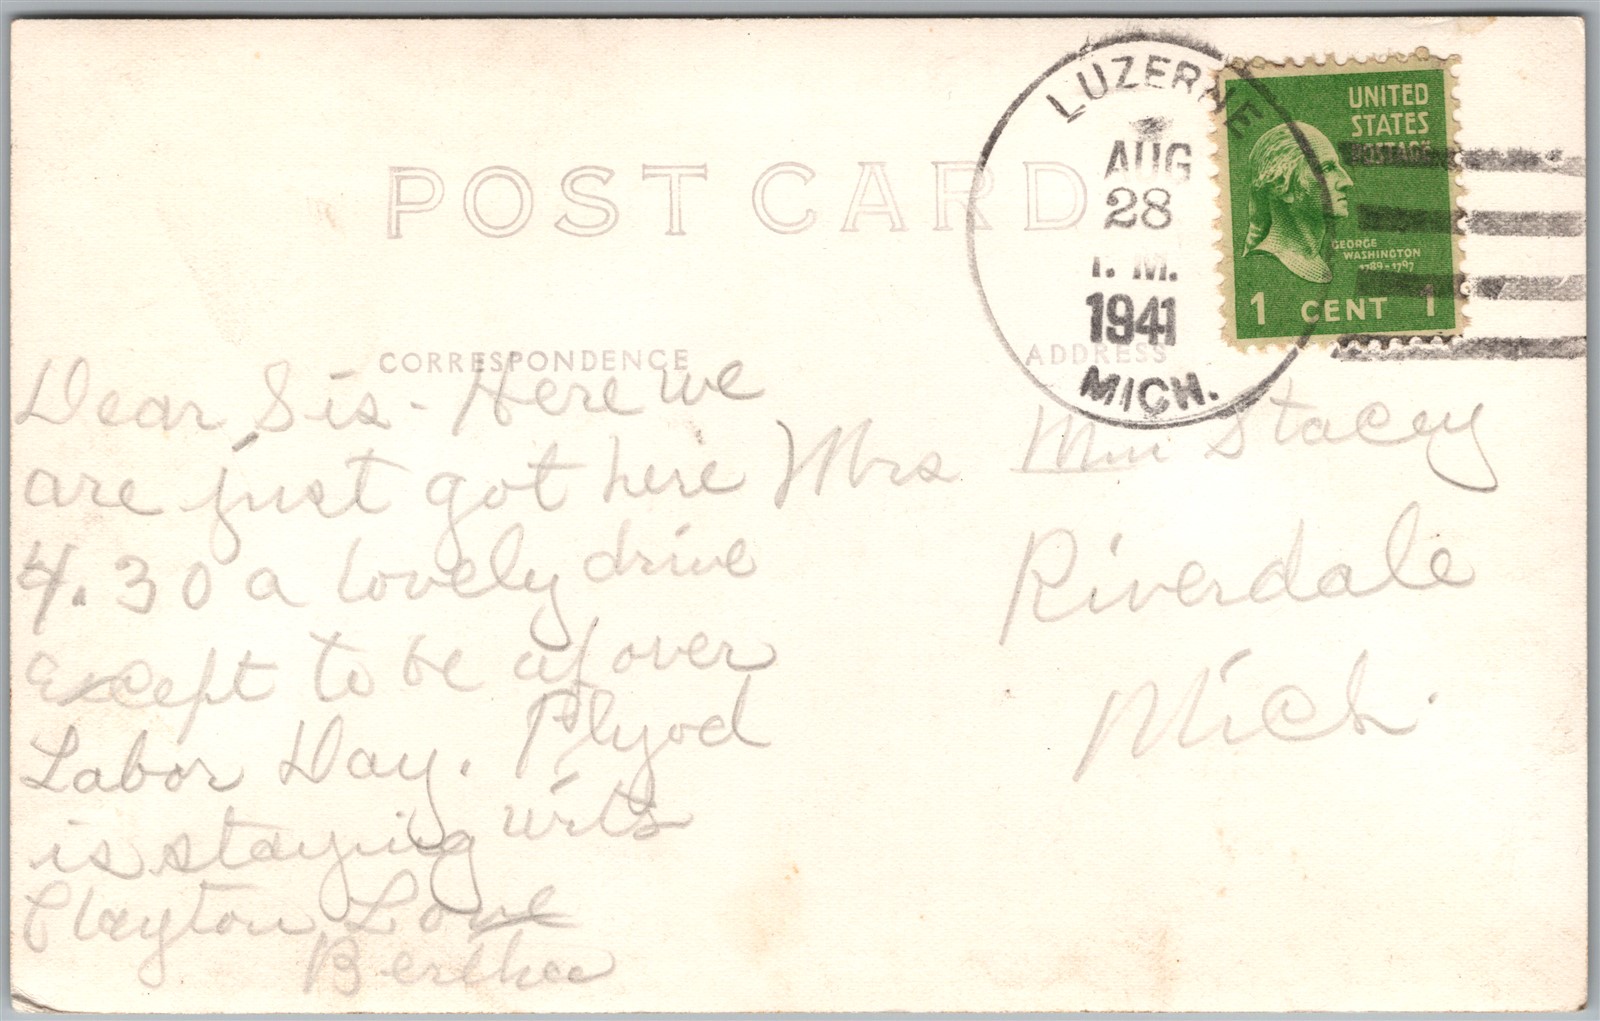 POST CARD
LUZERNE
AUG
28
M.
1941
MICH.
UNITED
STATES
POSTAGE
GEORGE
WASHINGTON
1789-1797
1 CENT 1
CORRESPONDENCE
Dear Sis - Here we
are just got here
4.30 a lovely drive
Except to be up over
Labor Day.
is staying with
Clayton Love
Bertha
ADDRESS
Mrs Stacey
Riverdale
Mich.